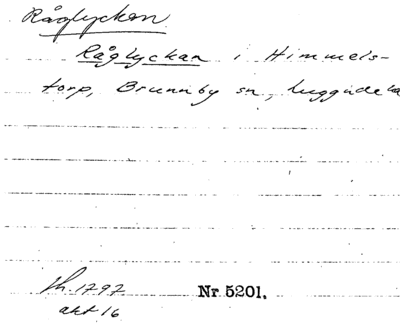 Råglyckan
Råglyckan i Himmels-
torp, Brunnby sn, Luggude hd
sk. 1797
akt 16
Nr 5201.